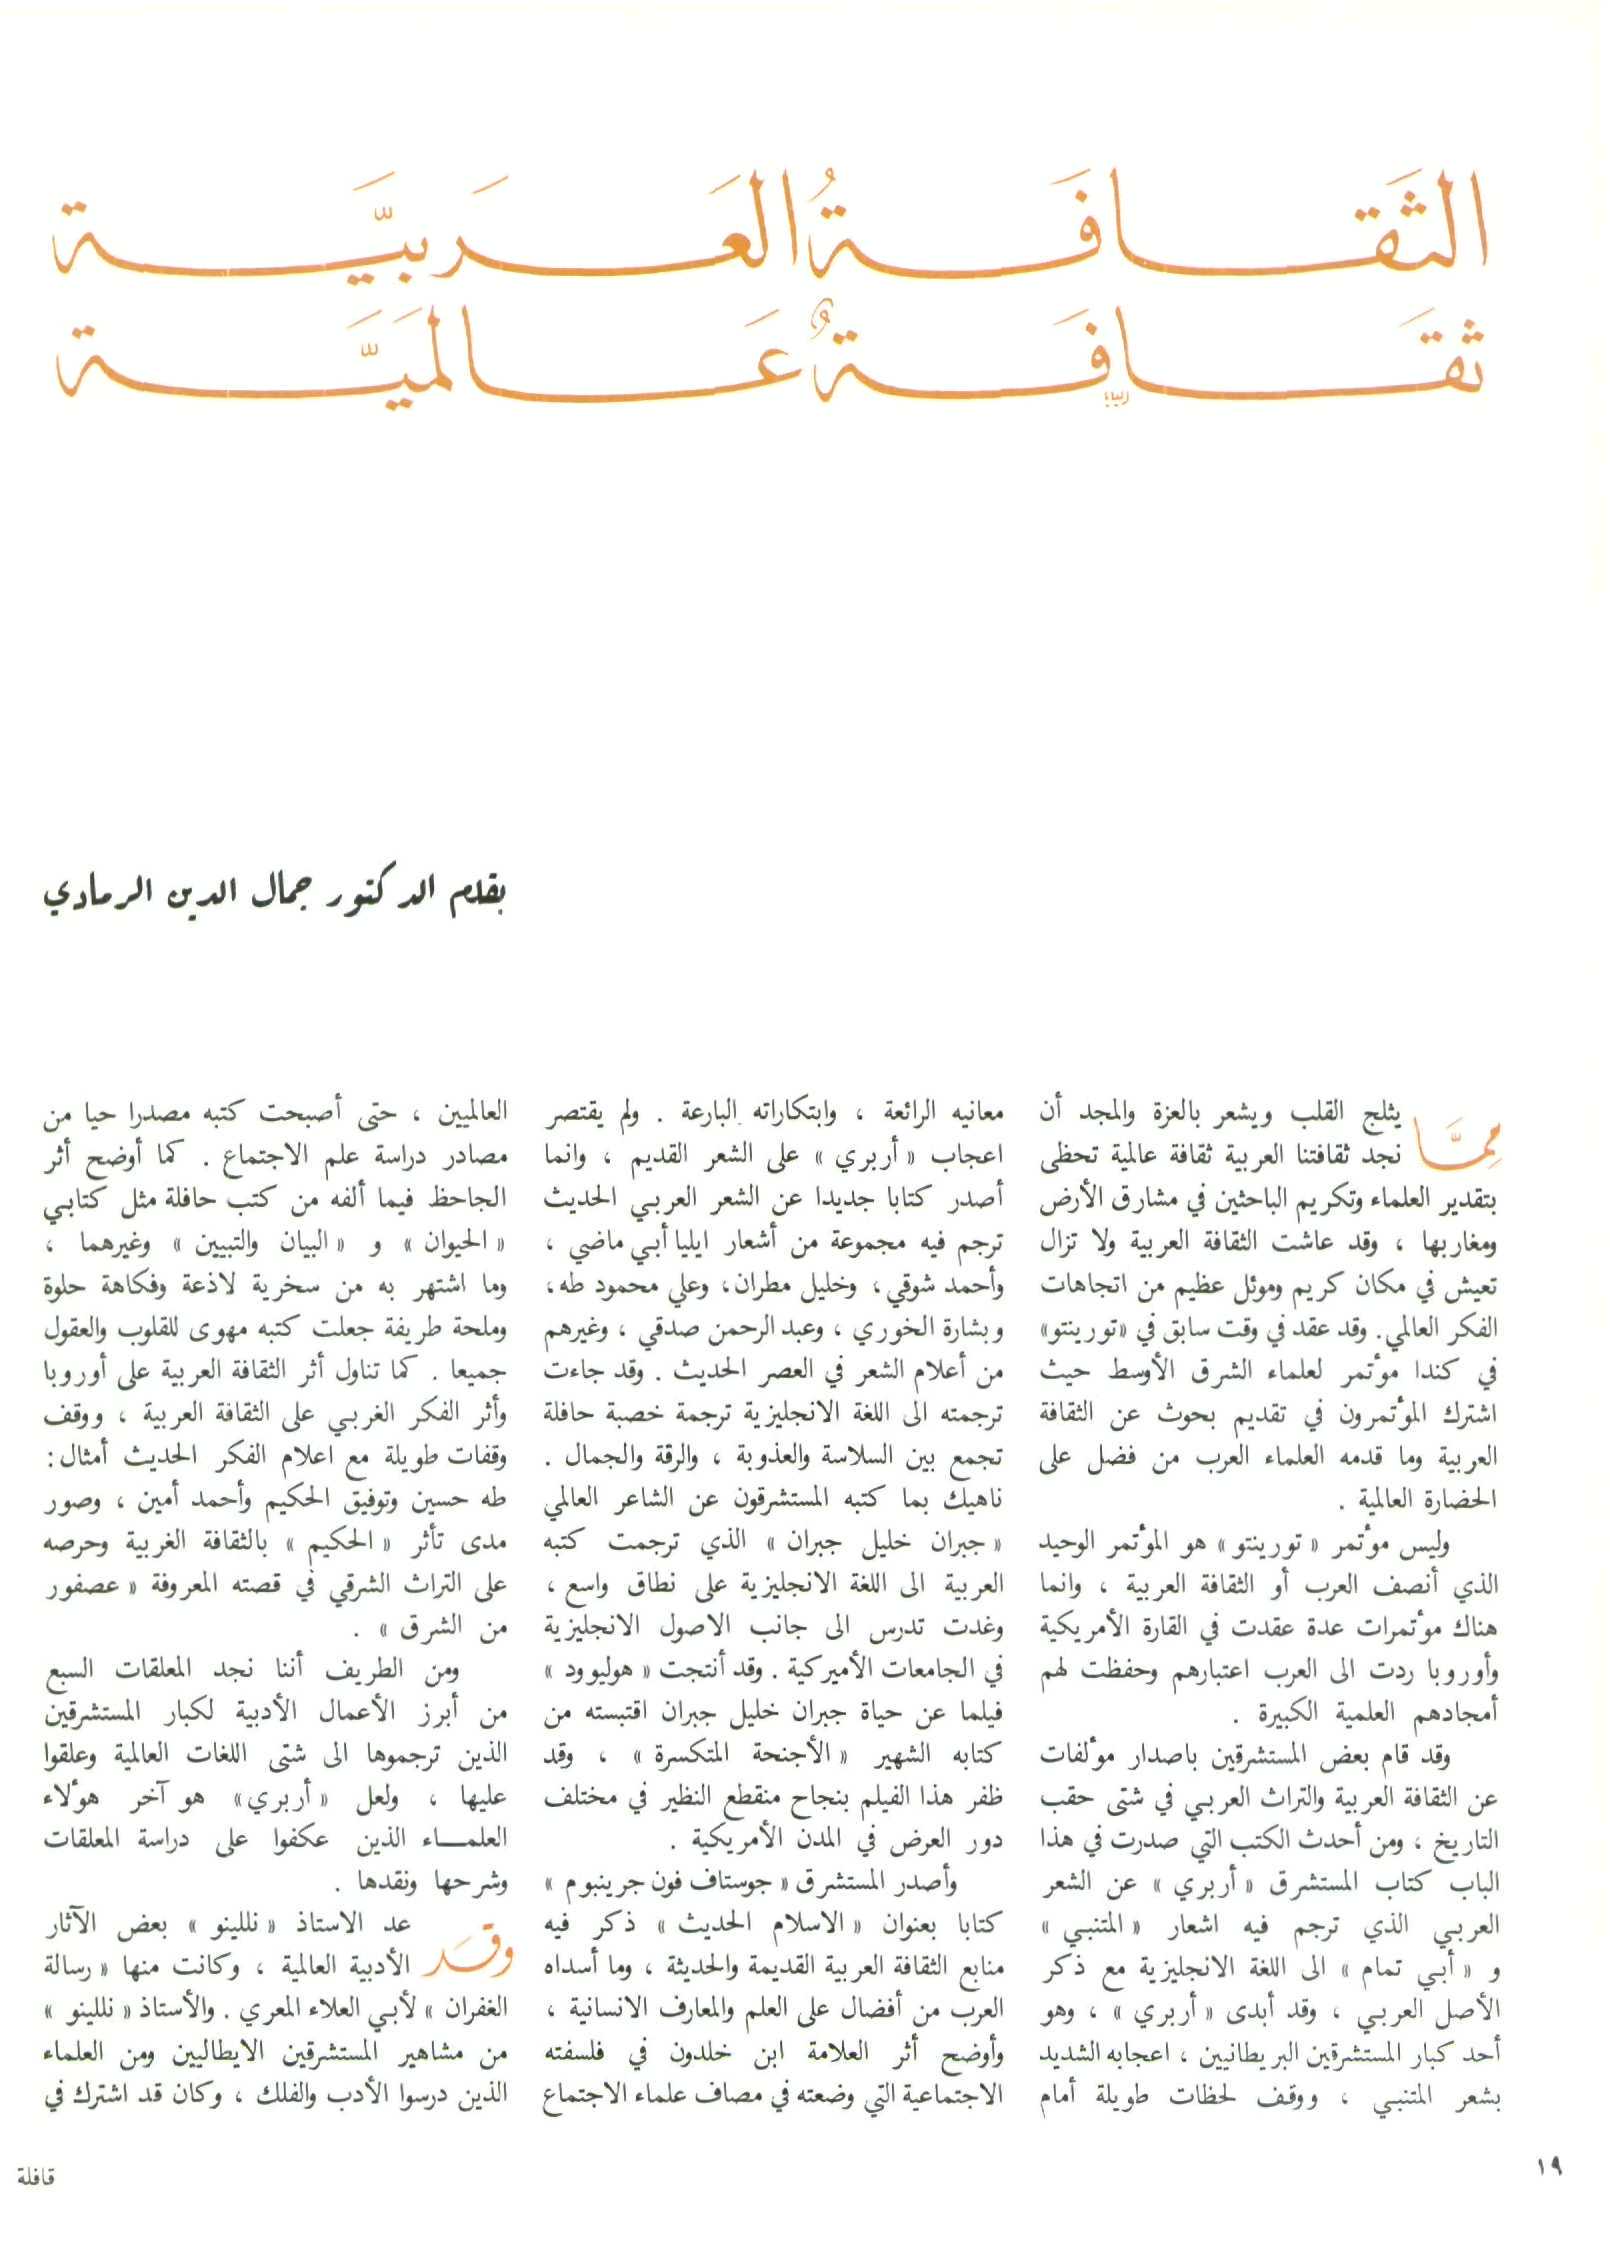 الثَّقَافَةُ العَرَبيَّة
ثقَافَةٌ عَالمَيَّة
بقلم الدكتور جمال الدين الرمادي
ممَّا يثلج القلب ويشعر بالعزة والمجد أن
نجد ثقافتنا العربية ثقافة عالمية تحظى
بتقدير العلماء وتكريم الباحثين في مشارق الأرض
ومغاربها ، وقد عاشت الثقافة العربية ولا تزال
تعيش في مكان كريم وموئل عظيم من اتجاهات
الفكر العالمي. وقد عقد في وقت سابق في «تورينتو»
في كندا مؤتمر لعلماء الشرق الأوسط حيث
اشترك المؤتمرون في تقديم بحوث عن الثقافة
العربية وما قدمه العلماء العرب من فضل على
الحضارة العالمية .
وليس مؤتمر « تورينتو » هو المؤتمر الوحيد
الذي أنصف العرب أو الثقافة العربية ، وانما
هناك مؤتمرات عدة عقدت في القارة الأمريكية
وأوروبا ردت الى العرب اعتبارهم وحفظت لهم
أمجادهم العلمية الكبيرة .
وقد قام بعض المستشرقين باصدار مؤلفات
عن الثقافة العربية والتراث العربي في شتى حقب
التاريخ ، ومن أحدث الكتب التي صدرت في هذا
الباب كتاب المستشرق « أربري » عن الشعر
العربي الذي ترجم فيه اشعار « المتنبي »
و « أبي تمام » الى اللغة الانجليزية مع ذكر
الأصل العربي ، وقد أبدى « أربري » ، وهو
أحد كبار المستشرقين البريطانيين ، اعجابه الشديد
بشعر المتنبي ، ووقف لحظات طويلة أمام
معانيه الرائعة ، وابتكاراته البارعة . ولم يقتصر
اعجاب « أربري » على الشعر القديم ، وانما
أصدر كتابا جديدا عن الشعر العربي الحديث
ترجم فيه مجموعة من أشعار ايليا أبي ماضي ،
وأحمد شوقي ، وخليل مطران ، وعلي محمود طه ،
وبشارة الخوري ، وعبد الرحمن صدقي ، وغيرهم
من أعلام الشعر في العصر الحديث . وقد جاءت
ترجمته الى اللغة الانجليزية ترجمة خصبة حافلة
تجمع بين السلاسة والعذوبة ، والرقة والجمال .
ناهيك بما كتبه المستشرقون عن الشاعر العالمي
« جبران خليل جبران » الذي ترجمت كتبه
العربية الى اللغة الانجليزية على نطاق واسع ،
وغدت تدرس الى جانب الاصول الانجليزية
في الجامعات الأميركية . وقد أنتجت « هوليوود »
فيلما عن حياة جبران خليل جبران اقتبسته من
كتابه الشهير « الأجنحة المتكسرة » ، وقد
ظفر هذا الفيلم بنجاح منقطع النظير في مختلف
دور العرض في المدن الأمريكية .
وأصدر المستشرق « جوستاف فون جرينبوم »
كتابا بعنوان « الاسلام الحديث » ذكر فيه
منابع الثقافة العربية القديمة والحديثة ، وما أسداه
العرب من أفضال على العلم والمعارف الانسانية ،
وأوضح أثر العلامة ابن خلدون في فلسفته
الاجتماعية التي وضعته في مصاف علماء الاجتماع
العالميين ، حتى أصبحت كتبه مصدرا حيا من
مصادر دراسة علم الاجتماع . كما أوضح أثر
الجاحظ فيما ألفه من كتب حافلة مثل كتابي
« الحيوان » و « البيان والتبيين » وغيرهما ،
وما اشتهر به من سخرية لاذعة وفكاهة حلوة
وملحة طريفة جعلت كتبه مهوى للقلوب والعقول
جميعا . كما تناول أثر الثقافة العربية على أوروبا
وأثر الفكر الغربي على الثقافة العربية ، ووقف
وقفات طويلة مع اعلام الفكر الحديث أمثال :
طه حسين وتوفيق الحكيم وأحمد أمين ، وصور
مدى تأثر « الحكيم » بالثقافة الغربية وحرصه
على التراث الشرقي في قصته المعروفة « عصفور
من الشرق » .
ومن الطريف أننا نجد المعلقات السبع
من أبرز الأعمال الأدبية لكبار المستشرقين
الذين ترجموها الى شتى اللغات العالمية وعلقوا
عليها ، ولعل « أربري» هو آخر هؤلاء
العلماء الذين عكفوا على دراسة المعلقات
وشرحها ونقدها .
وقَد عد الاستاذ « نللينو » بعض الآثار
الأدبية العالمية ، وكانت منها « رسالة
الغفران » لأبي العلاء المعري . والأستاذ « نللينو »
من مشاهير المستشرقين الايطاليين ومن العلماء
الذين درسوا الأدب والفلك ، وكان قد اشترك في
١٩
قافلة